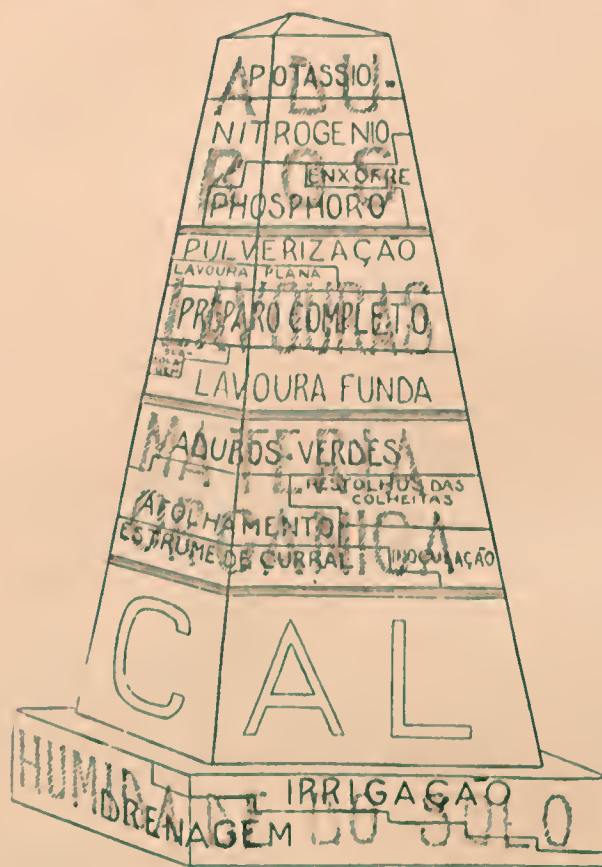 ADU
POTASSIO
NITROGENIO
BOS
ENXOFRE
PHOSPHORO
PULVERIZAÇÃO
LAVOURA PLANA
LAVOURAS
PREPARO COMPLETO
LAVOURA FUNDA
MATERIA
ADUBOS VERDES
RESTOLHOS DAS
COLHEITAS
AFOLHAMENTO
ORGANICA
ESTRUME DE CURRAL
INOCULAÇÃO
CAL
HUMIDADE DO SOLO
IRRIGAÇÃO
DRENAGEM